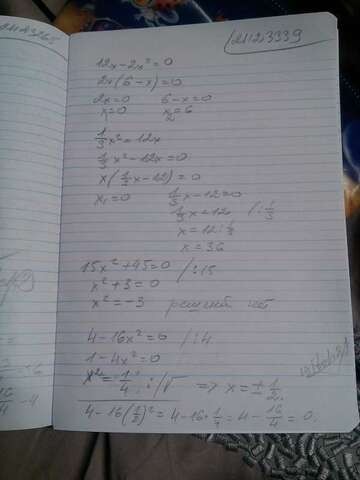 21123339
12x-2x²=0
2x(6-x)=0
2x=0 6-x=0
x=0 x₂=6
1/3x²=12x
1/3x²-12x=0
x(1/3x-12)=0
x₁=0 1/3x-12=0
1/3x=12 /:1/3
x=12:1/3
x=36
15x²+45=0 /:15
x²+3=0
x²=-3 решений нет
4-16x²=0 /:4
1-4x²=0
x²=1/4; /√ => x=±1/2.
4-16(1/2)²=4-16·1/4=4-16/4=0.